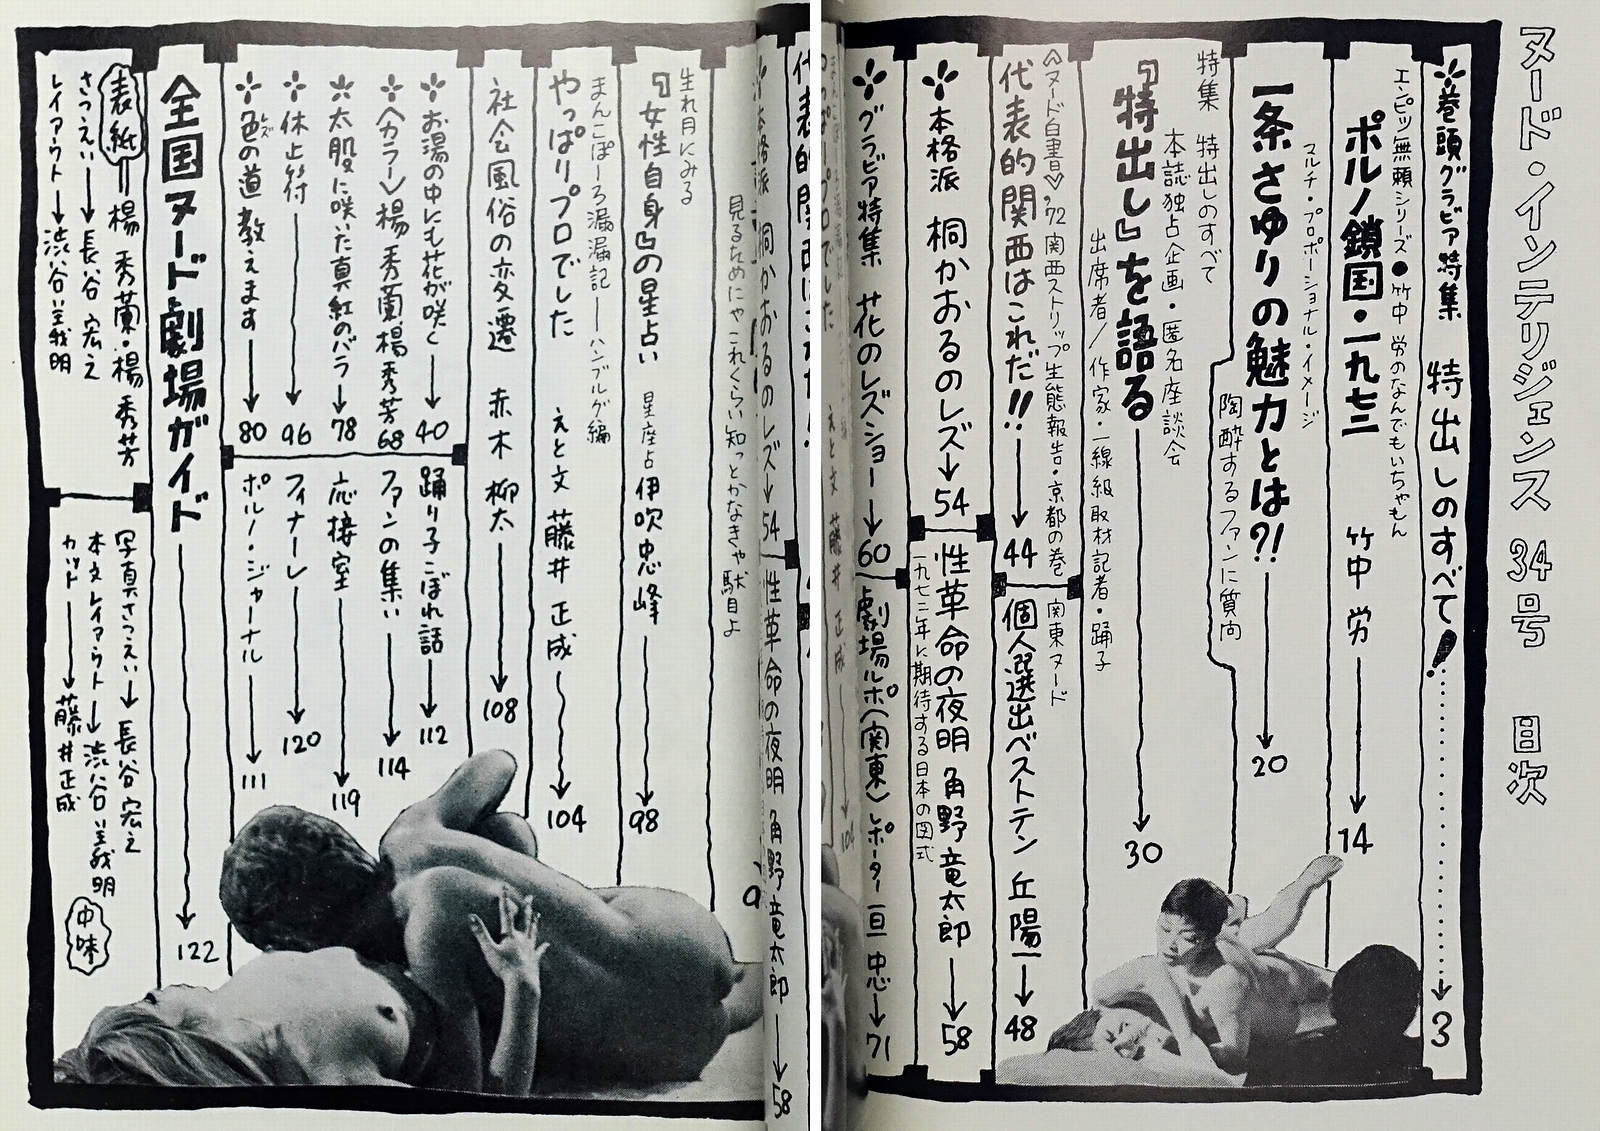 ヌード・インテリジェンス 34号 目次
巻頭グラビア特集 特出しのすべて!………→3
エンピツ無頼シリーズ●竹中 労のなんでもいちゃもん
ポルノ鎖国・一九七三 竹中 労→14
マルチ・プロポーショナル・イメージ
一条さゆりの魅力とは?!→20
陶酔するファンに質問
特集 特出しのすべて
本誌独占企画・匿名座談会
『特出し』を語る→30
出席者/作家・一線級取材記者・踊子
〈ヌード白書♡'72 関西ストリップ生態報告・京都の巻
代表的関西はこれだ!!→44
関東ヌード
個人選出ベストテン 丘陽一→48
本格派 桐かおるのレズ→54
性革命の夜明 角野竜太郎→58
一九七二年に期待する日本の図式
グラビア特集 花のレズショー→60
劇場ルポ〈関東〉 レポーター 亘 忠→71
見るためにゃこれくらい知っとかなきゃ駄目よ
生れ月にみる
『女性自身』の星占い 星座占 伊吹忠峰→98
まんこぽーろ漏漏記――ハンブルグ編
やっぱりプロでした えと文 藤井 正成→104
社会風俗の変遷 赤木 柳太→108
お湯の中にも花が咲く→40
〈カラー〉楊 秀蘭 楊 秀芳 68
太股に咲いた真紅のバラ→78
休止符→96
色の道教えます→80
レズ
踊り子こぼれ話→112
ファンの集い→114
応接室→119
フィナーレ→120
ポルノ・ジャーナル→111
全国ヌード劇場ガイド→122
表紙=楊 秀蘭・楊 秀芳
さつえい→長谷 宏之
レイアウト→渋谷義明
写真さつえい→長谷 宏之
本文レイアウト→渋谷義明
カット→藤井正成
中味